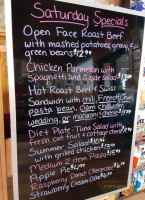 Saturday Specials
Open Face Roast Beef
with mashed potatoes, gravy &
green beans $12.99
Chicken Parmesan with
Spaghetti and Side salad
Hot Roast Beef & Swiss
Sandwich with chili, French fries,
pasta bean, clam chowder,
wedding, or macaroni
Diet Plate - Tuna Salad with
fresh cut fruit & cottage cheese
Summer Salad
with grilled chicken
Medium 2 item Pizza
Apple Pie
Raspberry Donut
Strawberry Cream Cake